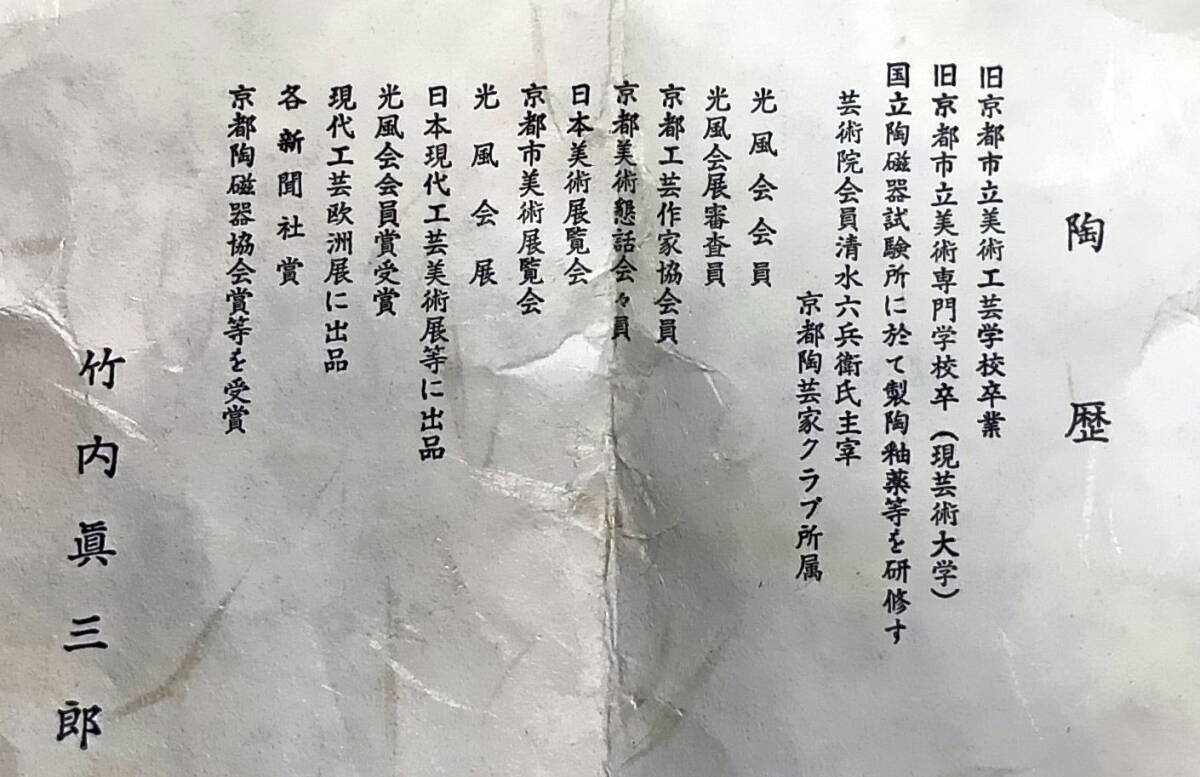 陶歴
旧京都市立美術工芸学校卒業
旧京都市立美術専門学校卒（現芸術大学）
国立陶磁器試験所に於て製陶釉薬等を研修す
芸術院会員清水六兵衛氏主宰
京都陶芸家クラブ所属
光風会会員
光風会展審査員
京都工芸作家協会員
京都美術懇話会々員
日本美術展覧会
京都市美術展覧会
光風会展
日本現代工芸美術展等に出品
光風会会員賞受賞
現代工芸欧洲展に出品
各新聞社賞
京都陶磁器協会賞等を受賞
竹内眞三郎